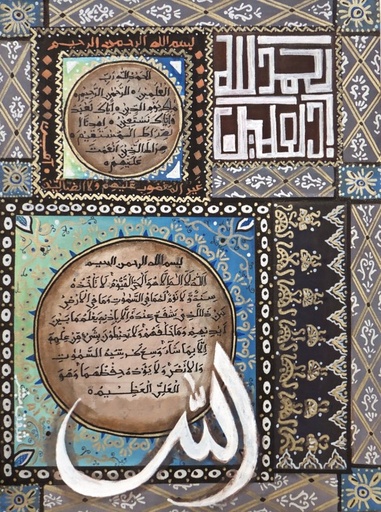 بسم الله الرحمن الرحيم
الحمد لله رب
العلمين ه الرحمن الرحيم ه
ملك يوم الدين ه اياك نعبد
واياك نستعين ه اهدنا
الصراط المستقيم ه
صراط الذين انعمت
عليهم ه
غير المغضوب عليهم ولا الضالين
الحمد لله
رب العلمين
بسم الله الرحمن الرحيم
الله لا اله الا هو الحي القيوم لا تاخذه
سنة ولا نوم له ما في السموت وما في الارض
من ذا الذي يشفع عنده الا باذنه يعلم ما بين
ايديهم وما خلفهم ولا يحيطون بشيء من علمه
الا بما شاء وسع كرسيه السموت
والارض ولا يوده حفظهما وهو
العلي العظيم ه
الله